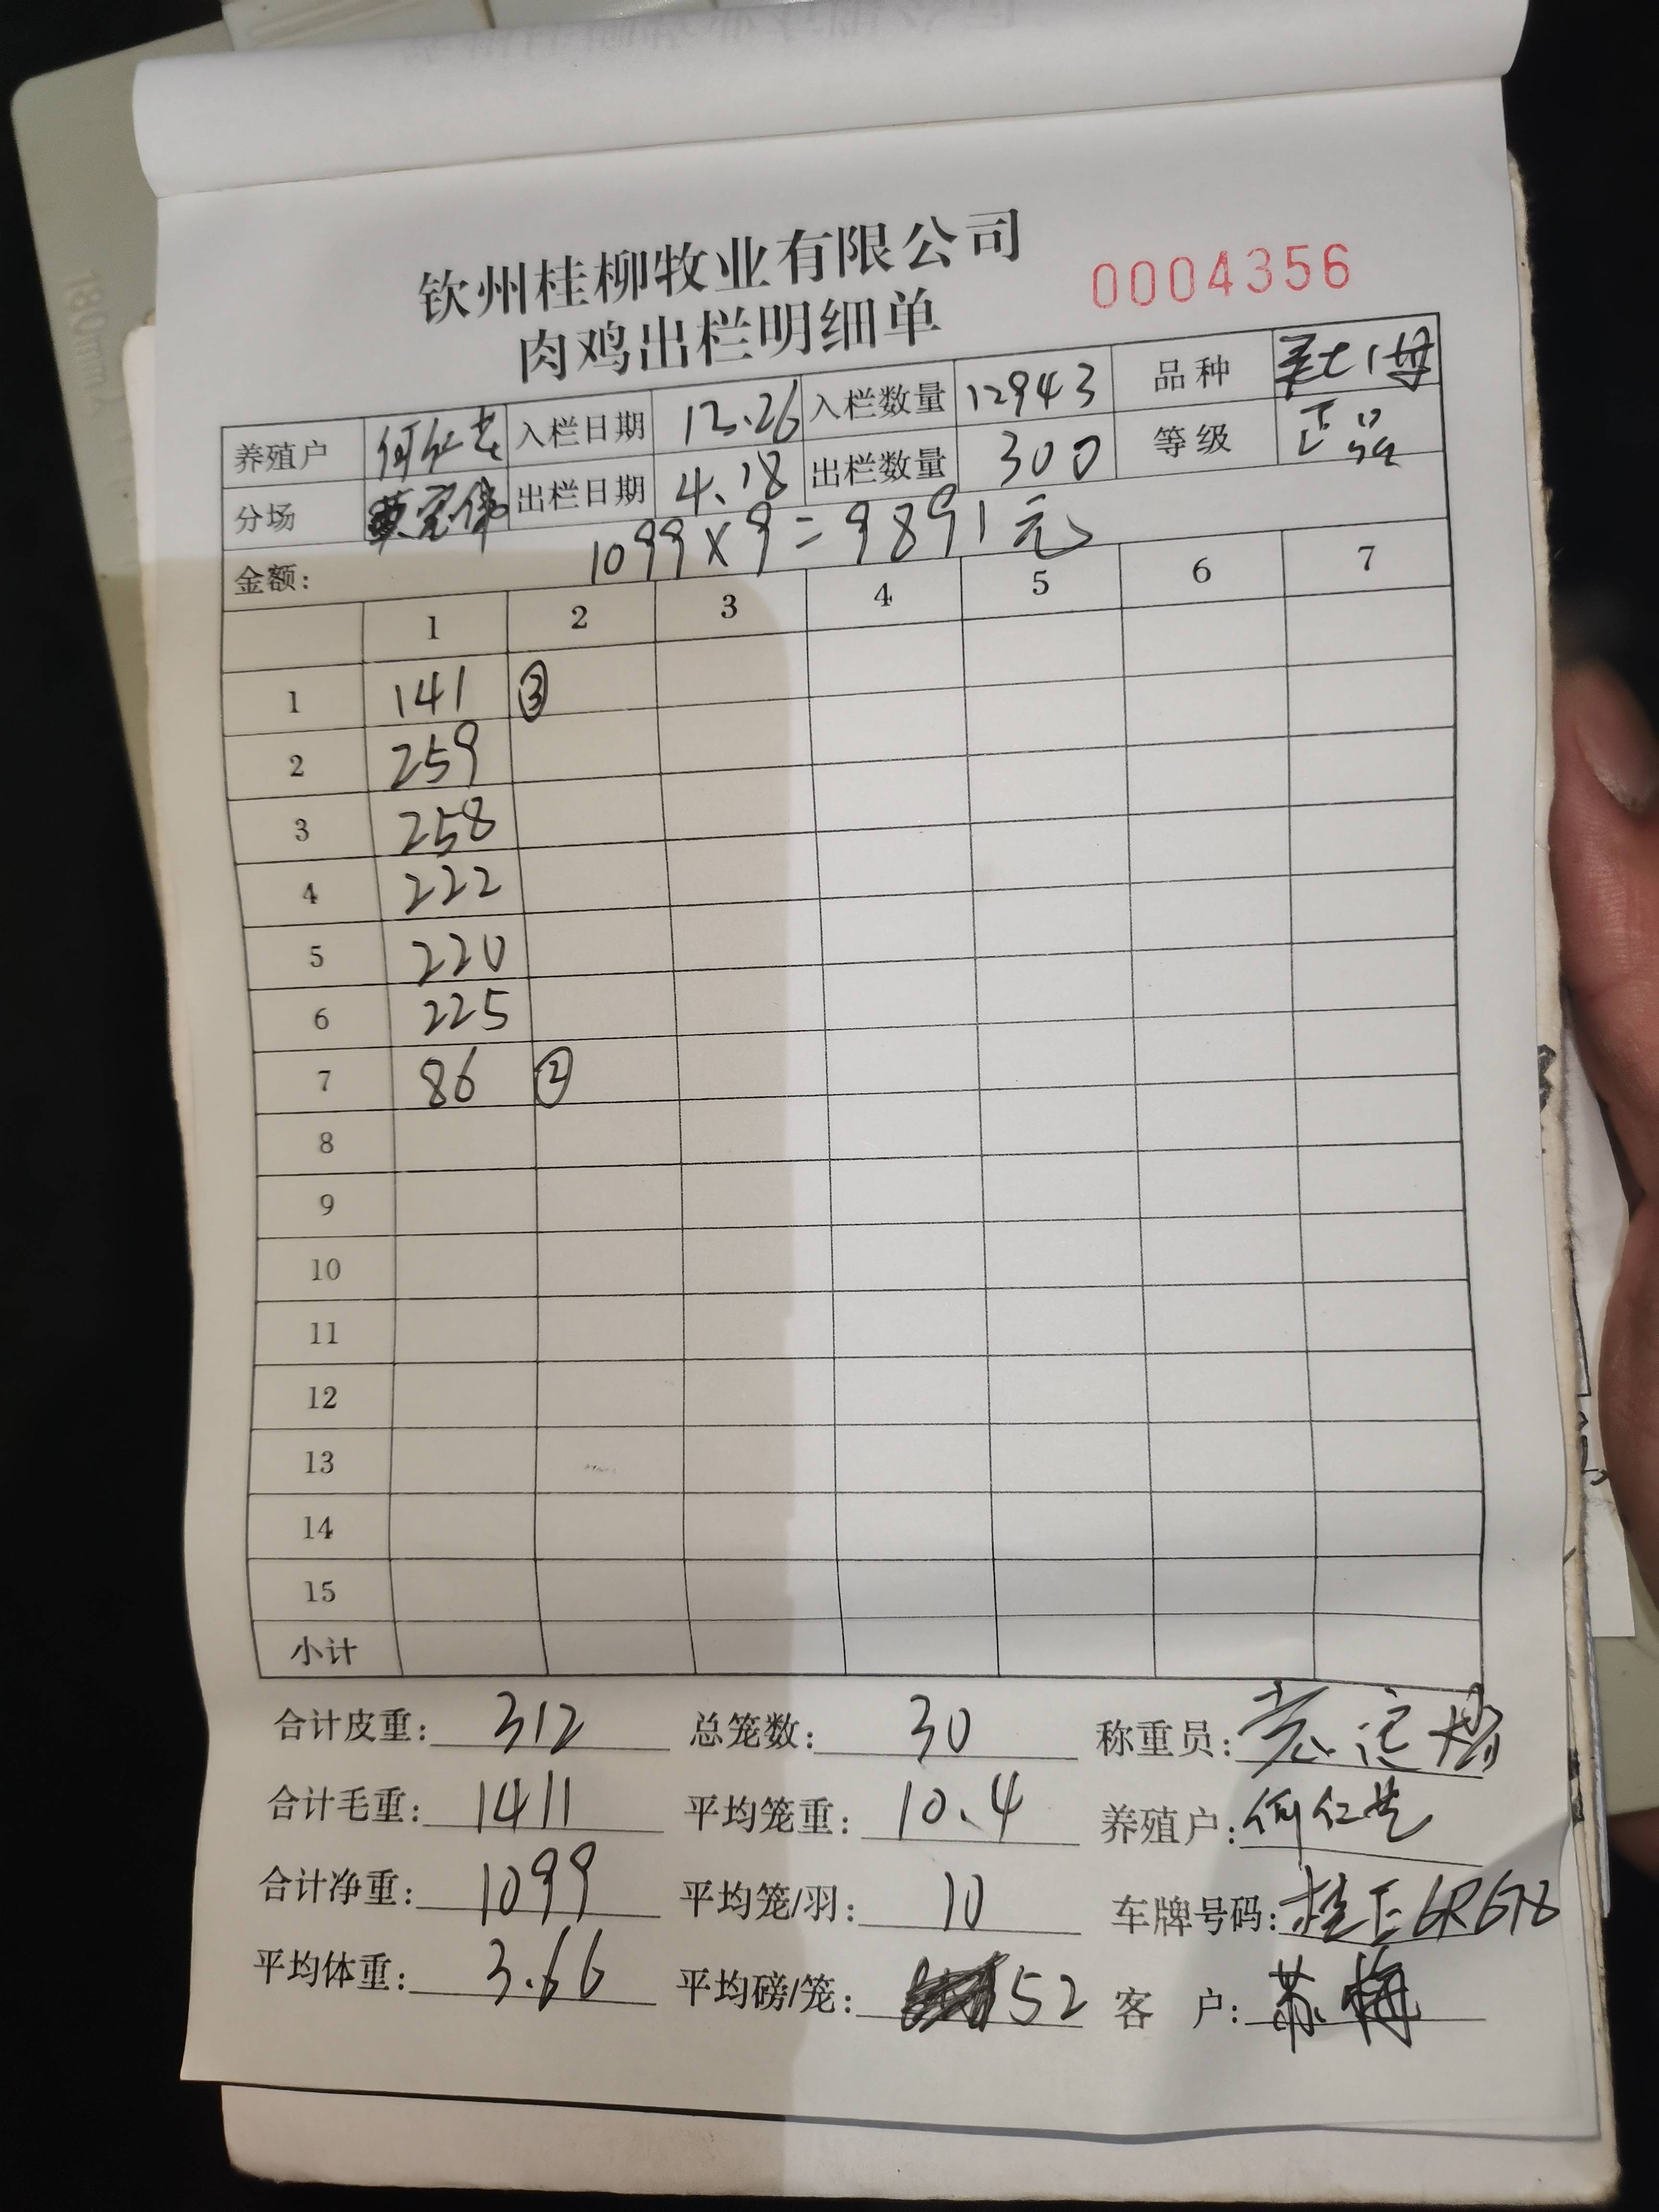 钦州桂柳牧业有限公司
肉鸡出栏明细单
0004356
养殖户 何仁芸 入栏日期 12.26 入栏数量 12943 品种
分场 出栏日期 4.18 出栏数量 300 等级 正品
金额: 1099×9=9891元
1 2 3 4 5 6 7
1 141 ③
2 259
3 258
4 222
5 220
6 225
7 86 ②
8
9
10
11
12
13
14
15
小计
合计皮重: 312 总笼数: 30 称重员:
合计毛重: 1411 平均笼重: 10.4 养殖户: 何仁芸
合计净重: 1099 平均笼/羽: 10 车牌号码:
平均体重: 3.66 平均磅/笼: 52 客 户: 苏梅
180mm